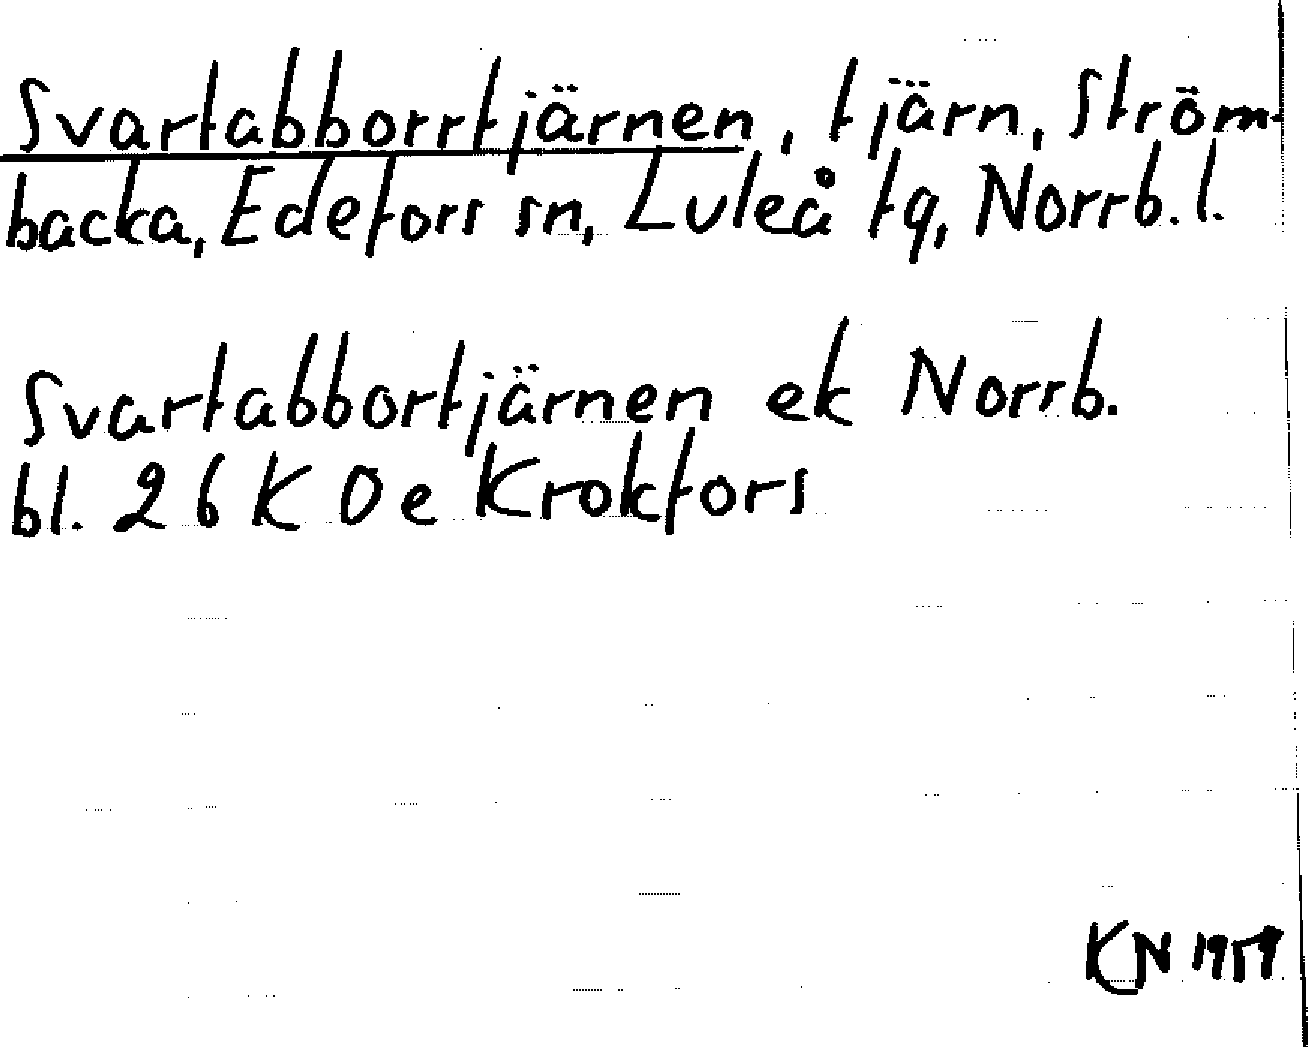 Svartabborrtjärnen, tjärn, Ström-
backa, Edefors sn, Luleå tg, Norrb. l.
Svartabbortjärnen ek Norrb.
bl. 26 K 0 e Krokfors
KN 1959